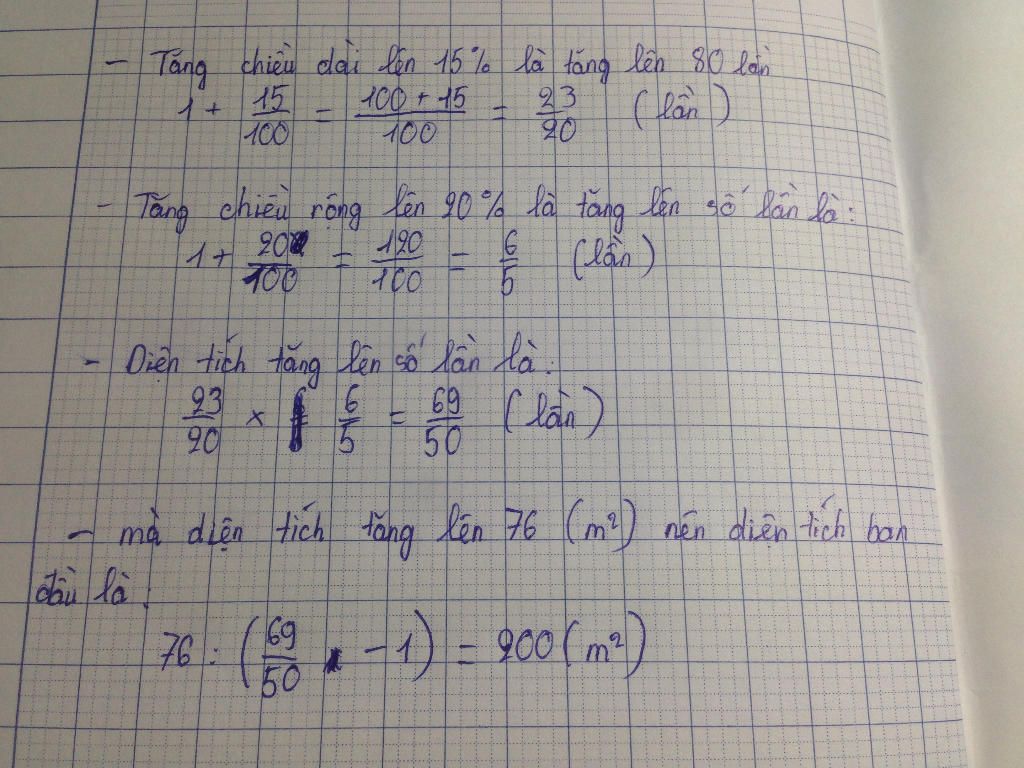 - Tăng chiều dài lên 15% là tăng lên 80 lần
1 + 15/100 = 100 + 15/100 = 23/20 (lần)
- Tăng chiều rộng lên 20% là tăng lên số lần là:
1 + 20/100 = 120/100 = 6/5 (lần)
- Diện tích tăng lên số lần là:
23/20 × 6/5 = 69/50 (lần)
- mà diện tích tăng lên 76 (m²) nên diện tích ban
đầu là:
76 : (69/50 - 1) = 200 (m²)